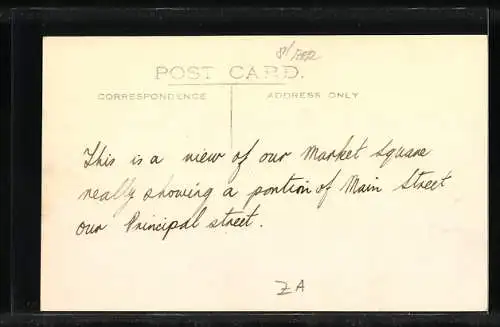 POST CARD.
CORRESPONDENCE
ADDRESS ONLY
This is a view of our Market Square
really showing a portion of Main Street
our Principal street.
ZA